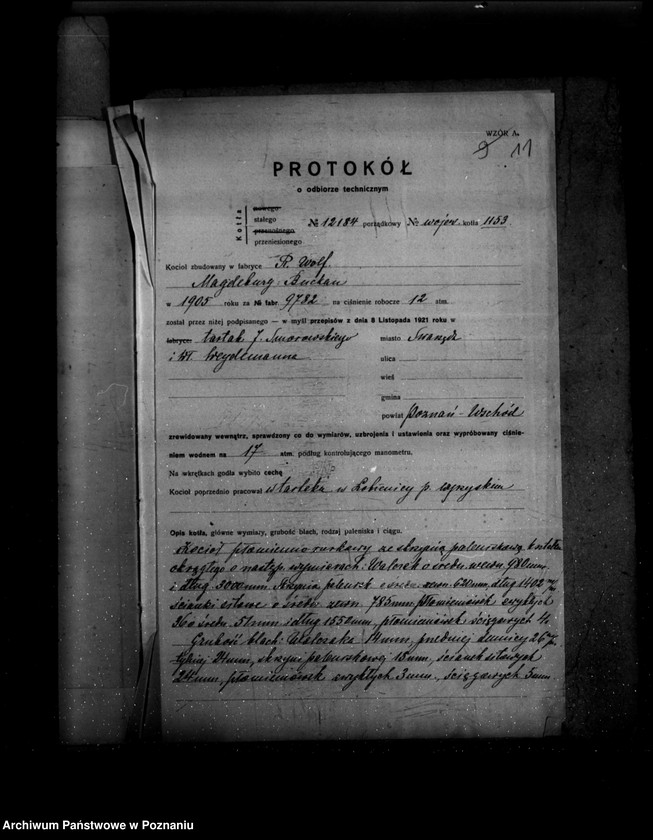 WZÓR A.
9 11
PROTOKÓŁ
o odbiorze technicznym
Kotła
nowego
stałego
przenośnego
przeniesionego
№ 12184 porządkowy № wojew. kotła 1153
Kocioł zbudowany w fabryce R. Wolf
Magdeburg Buckau
w 1905 roku za № fabr. 9782 na ciśnienie robocze 12 atm.
został przez niżej podpisanego — w myśl przepisów z dnia 8 Listopada 1921 roku w
fabryce: tartak J. Smorowskiego
i Weydemanna
miasto Swarzędz
ulica
wieś
gmina
powiat Poznań-Wschód
zrewidowany wewnątrz, sprawdzony co do wymiarów, uzbrojenia i ustawienia oraz wypróbowany ciśnie-
niem wodnem na 17 atm. podług kontrolującego manometru.
Na wkrętkach godła wybito cechę
Kocioł poprzednio pracował w tartaku w Łobżenicy p. wyrzyskim
Opis kotła, główne wymiary, grubość blach, rodzaj paleniska i ciągu.
Kocioł płomienno rurkowy ze skrzynią paleniskową
okrągłego o następ. wymiarach: Walczak o średn. wewn. 980 mm
i dług. 3000 mm. Skrzynia palenisk. o średn. zewn. 620 mm, dług. 1402 mm
ścianki sitowe o średn. zewn. 785 mm płomieniówek zwykłych
36 o średn. 51 mm i dług. 1550 mm, płomieniówek ściągowych 4.
Grubość blach: Walczaka 14 mm, przedniej dennicy 26 mm
tylniej 21 mm, skrzyni paleniskowej 13 mm, ścianek sitowych
24 mm, płomieniówek zwykłych 3 mm, ściągowych 5 mm
Archiwum Państwowe w Poznaniu